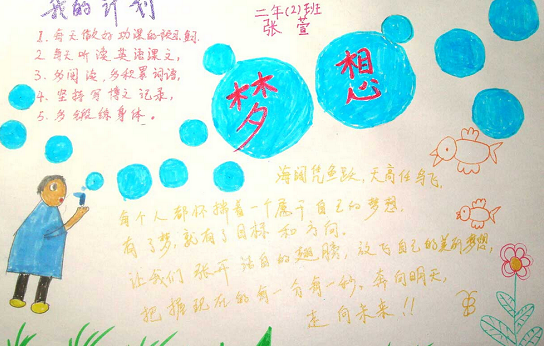 我的计划
二年(2)班
张萱
1. 每天做好功课的预习,
2. 每天听读英语课文,
3. 多阅读,多积累词语,
4. 坚持写博文记录,
5. 多锻练身体。
梦想
海阔凭鱼跃,天高任鸟飞,
每个人都怀揣着一个属于自己的梦想,
有了梦,就有了目标和方向。
让我们张开洁白的翅膀,放飞自己的美丽梦想,
把握现在的每一分每一秒。奔向明天,
走向未来!!